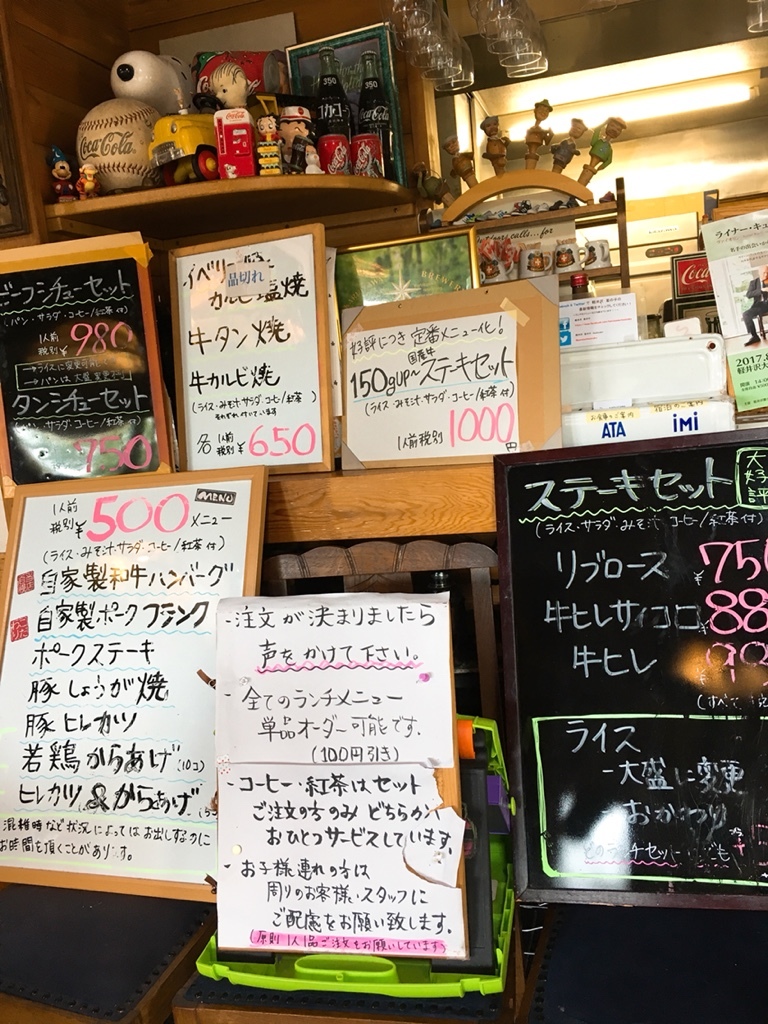 Coca-Cola
350
350
コカ・コーラ
Coca-Cola
ビーフシチューセット
(パン・サラダ・コーヒー/紅茶付)
1人前
税別 ¥980
→ライスに変更可能
→パンは大盛変更
タンシチューセット
(パン・サラダ・コーヒー/紅茶付)
750
品切れ
カルビ塩焼
牛タン焼
牛カルビ焼
(ライス・みそ汁・サラダ・コーヒー/紅茶)
それぞれ付いています
各 1人前
税別 ¥650
好評につき 定番メニュー化!
国産牛
150gup〜ステーキセット
(ライス・みそ汁・サラダ・コーヒー/紅茶 付)
1人前税別 1000円
ATA
iMi
ライナー・キュ
2017.8
軽井沢大
1人前
税別 ¥500 メニュー
MENU
(ライス・みそ汁・サラダ・コーヒー/紅茶 付)
自家製和牛ハンバーグ
自家製ポークフランク
ポークステーキ
豚しょうが焼
豚ヒレカツ
若鶏からあげ(10コ)
ヒレカツ&からあげ
混雑時など状況によってはお出しするのに
お時間を頂くことがあります。
-注文が決まりましたら
声をかけて下さい。
-全てのランチメニュー
単品オーダー可能です。
(100円引き)
-コーヒー・紅茶はセット
ご注文の方のみ どちらか
おひとつサービスしています。
-お子様連れの方は
周りのお客様・スタッフに
ご配慮をお願い致します。
(原則1人1品ご注文をお願いしています)
ステーキセット
大好評
(ライス・サラダ・みそ汁・コーヒー/紅茶付)
リブロース ¥75
牛ヒレサイコロ ¥88
牛ヒレ
ライス
-大盛に変更
おかわり